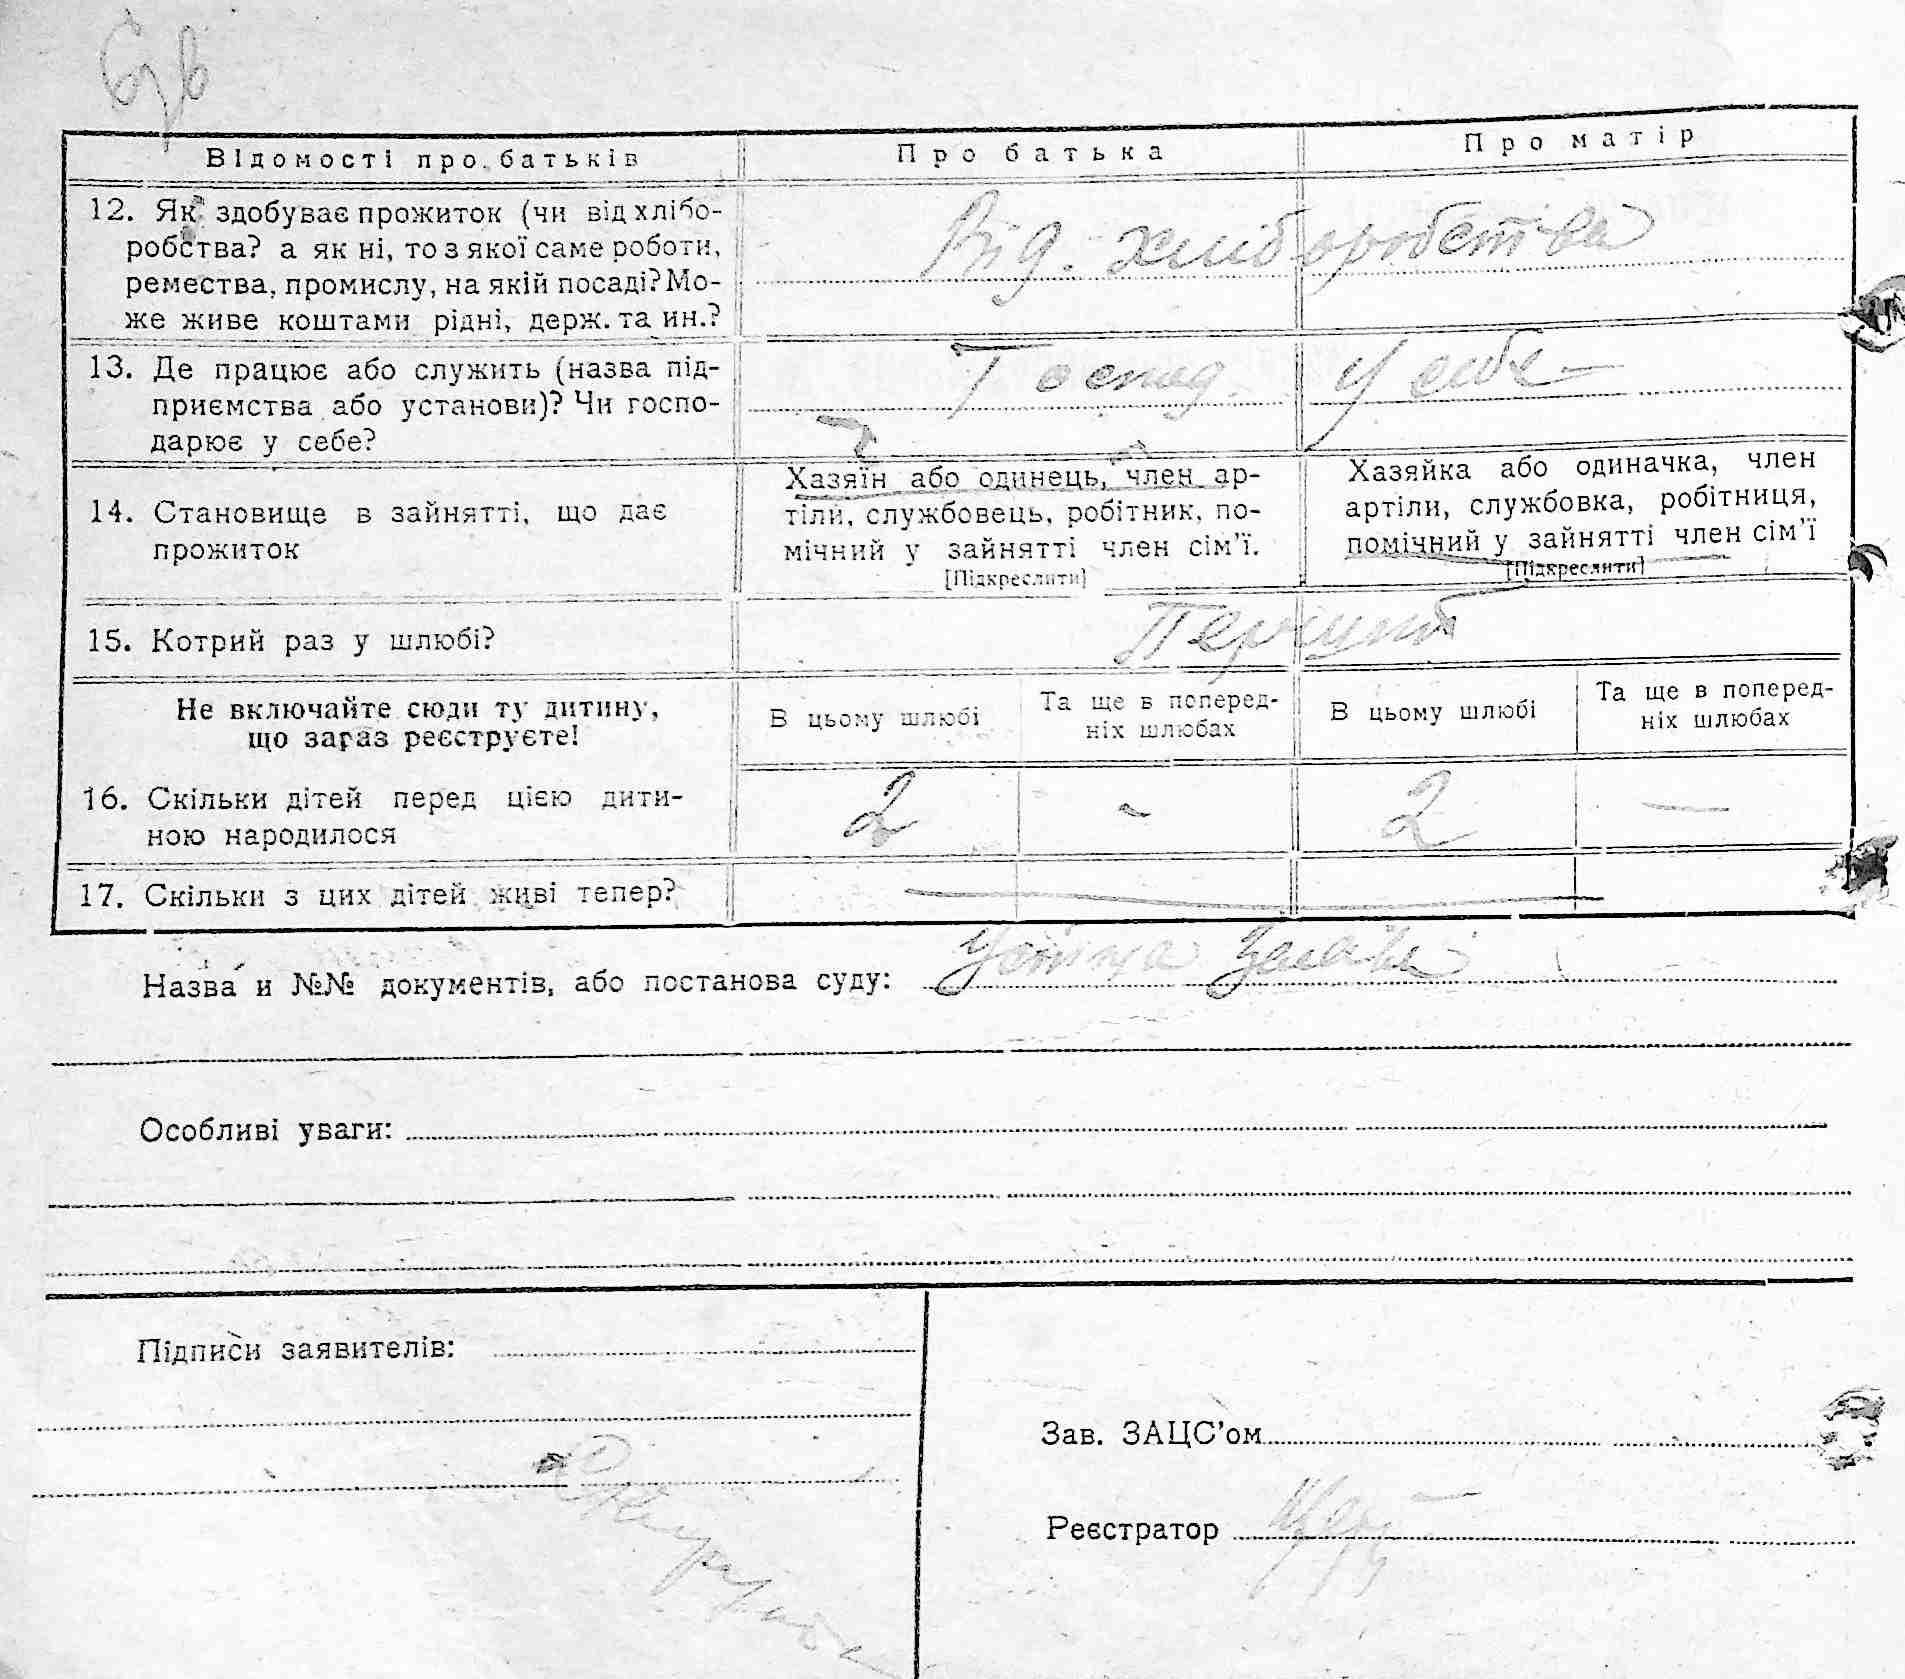 Відомості про батьків
Про батька
Про матір
12. Як здобуває прожиток (чи від хлібо-
робства? а як ні, то з якої саме роботи,
ремества, промислу, на якій посаді? Мо-
же живе коштами рідні, держ. та ин.?
Від. хліборобства
13. Де працює або служить (назва під-
приємства або установи)? Чи госпо-
дарює у себе?
Господ.
У себе
14. Становище в зайнятті, що дає
прожиток
Хазяїн або одинець, член ар-
тіли, службовець, робітник, по-
мічний у зайнятті член сім'ї.
[Підкреслити]
Хазяйка або одиначка, член
артіли, службовка, робітниця,
помічний у зайнятті член сім'ї
[Підкреслити]
15. Котрий раз у шлюбі?
Не включайте сюди ту дитину,
що зараз реєструєте!
В цьому шлюбі
Та ще в поперед-
ніх шлюбах
В цьому шлюбі
Та ще в поперед-
ніх шлюбах
16. Скільки дітей перед цією дити-
ною народилося
2
-
2
—
17. Скільки з цих дітей живі тепер?
—
Назва и №№ документів, або постанова суду:
Особливі уваги:
Підписи заявителів:
Зав. ЗАЦС'ом
Реєстратор